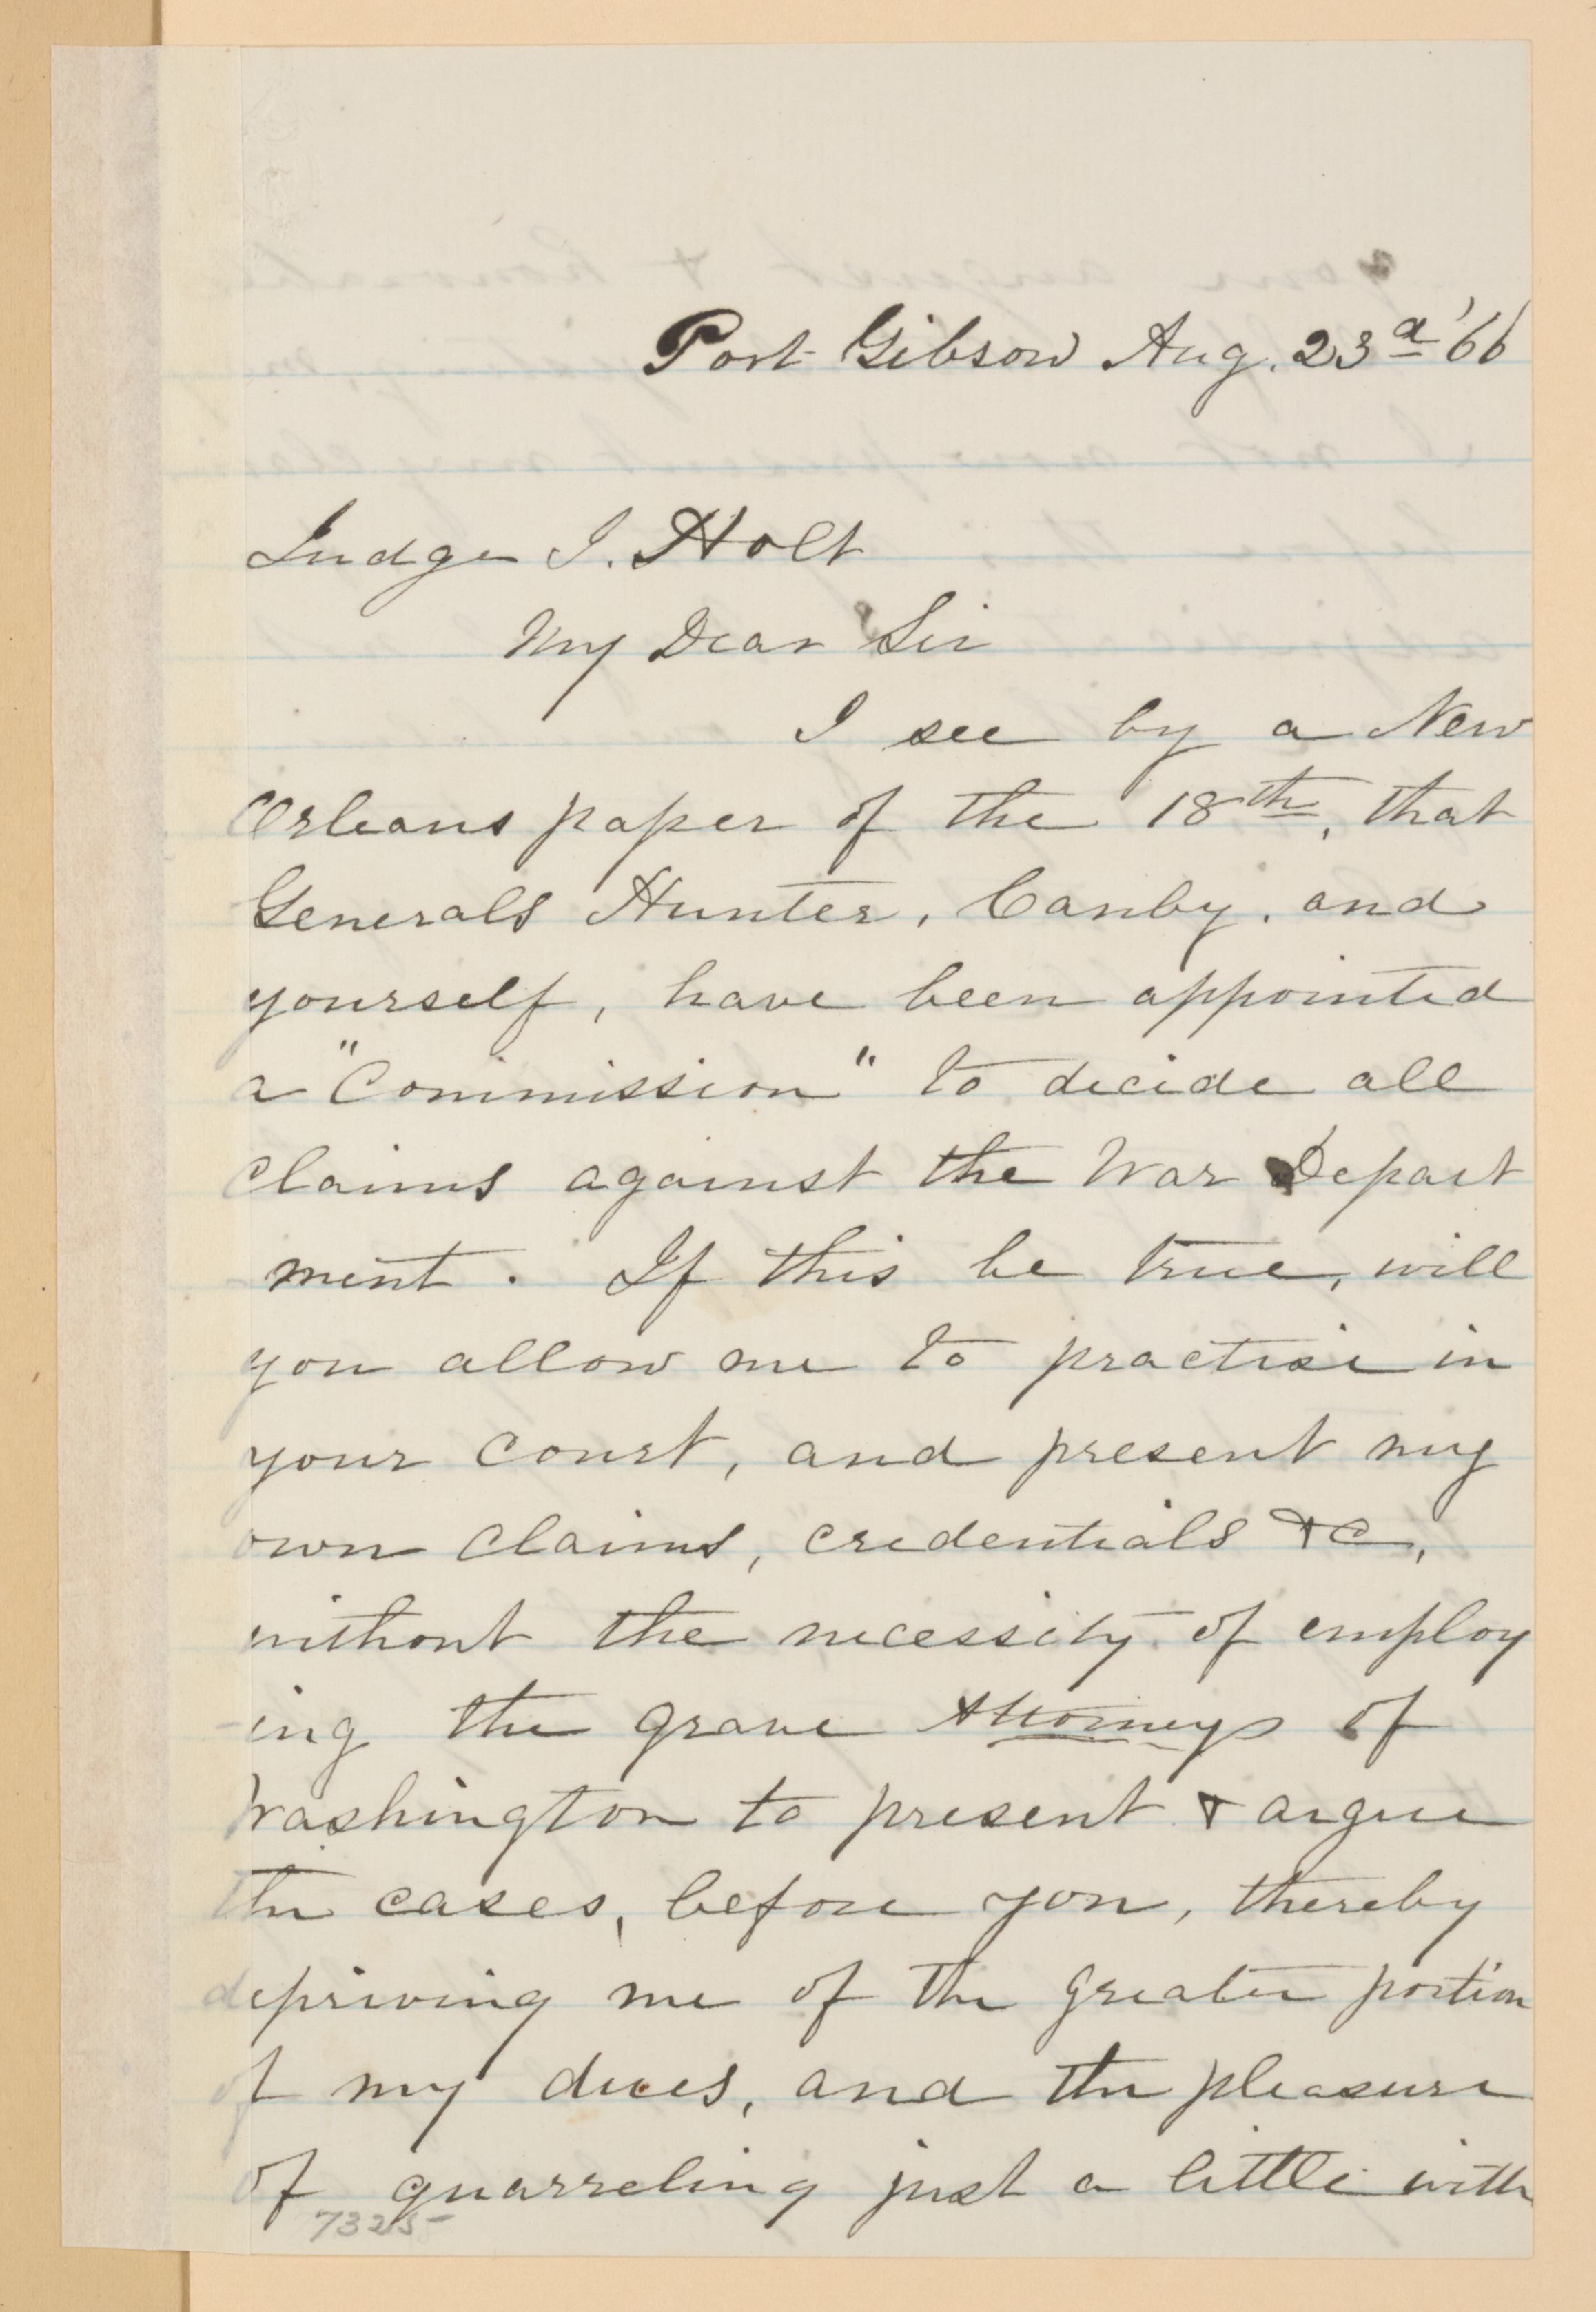 Port Gibson Aug. 23d '66
Judge J. Holt
My Dear Sir
I see by a New
Orleans paper of the 18th, that
Generals Hunter, Canby, and
yourself, have been appointed
a "Commission" to decide all
claims against the War Depart
ment. If this be true, will
you allow me to practise in
your court, and present my
own claims, credentials &c,
without the necessity of employ
-ing the grave Attorneys of
Washington to present & argue
the cases, before you, thereby
depriving me of the greater portion
of my dues, and the pleasure
of quarreling just a little with
7325